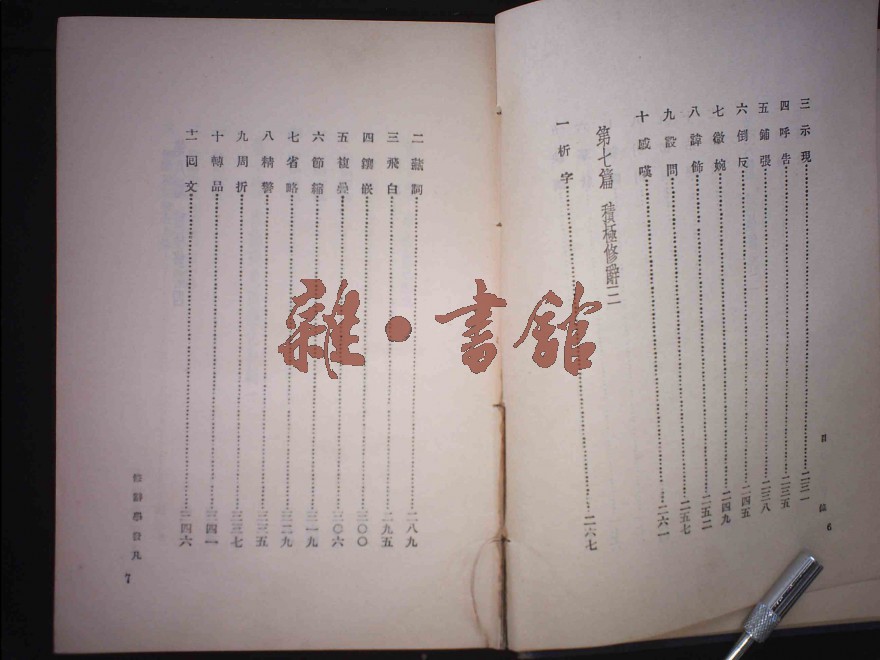 三 示現 二三一
四 呼告 二三五
五 鋪張 二三八
六 倒反 二四五
七 微婉 二四九
八 諱飾 二五二
九 設問 二五七
十 感嘆 二六一
第七篇 積極修辭三
一 析字 二六七
目 錄 6
二 藏詞 二八九
三 飛白 二九五
四 鑲嵌 三〇〇
五 複疊 三〇六
六 節縮 三一九
七 省略 三二九
八 精警 三三五
九 周折 三三七
十 轉品 三四一
十一 回文 三四六
修辭學發凡 7
雜·書館